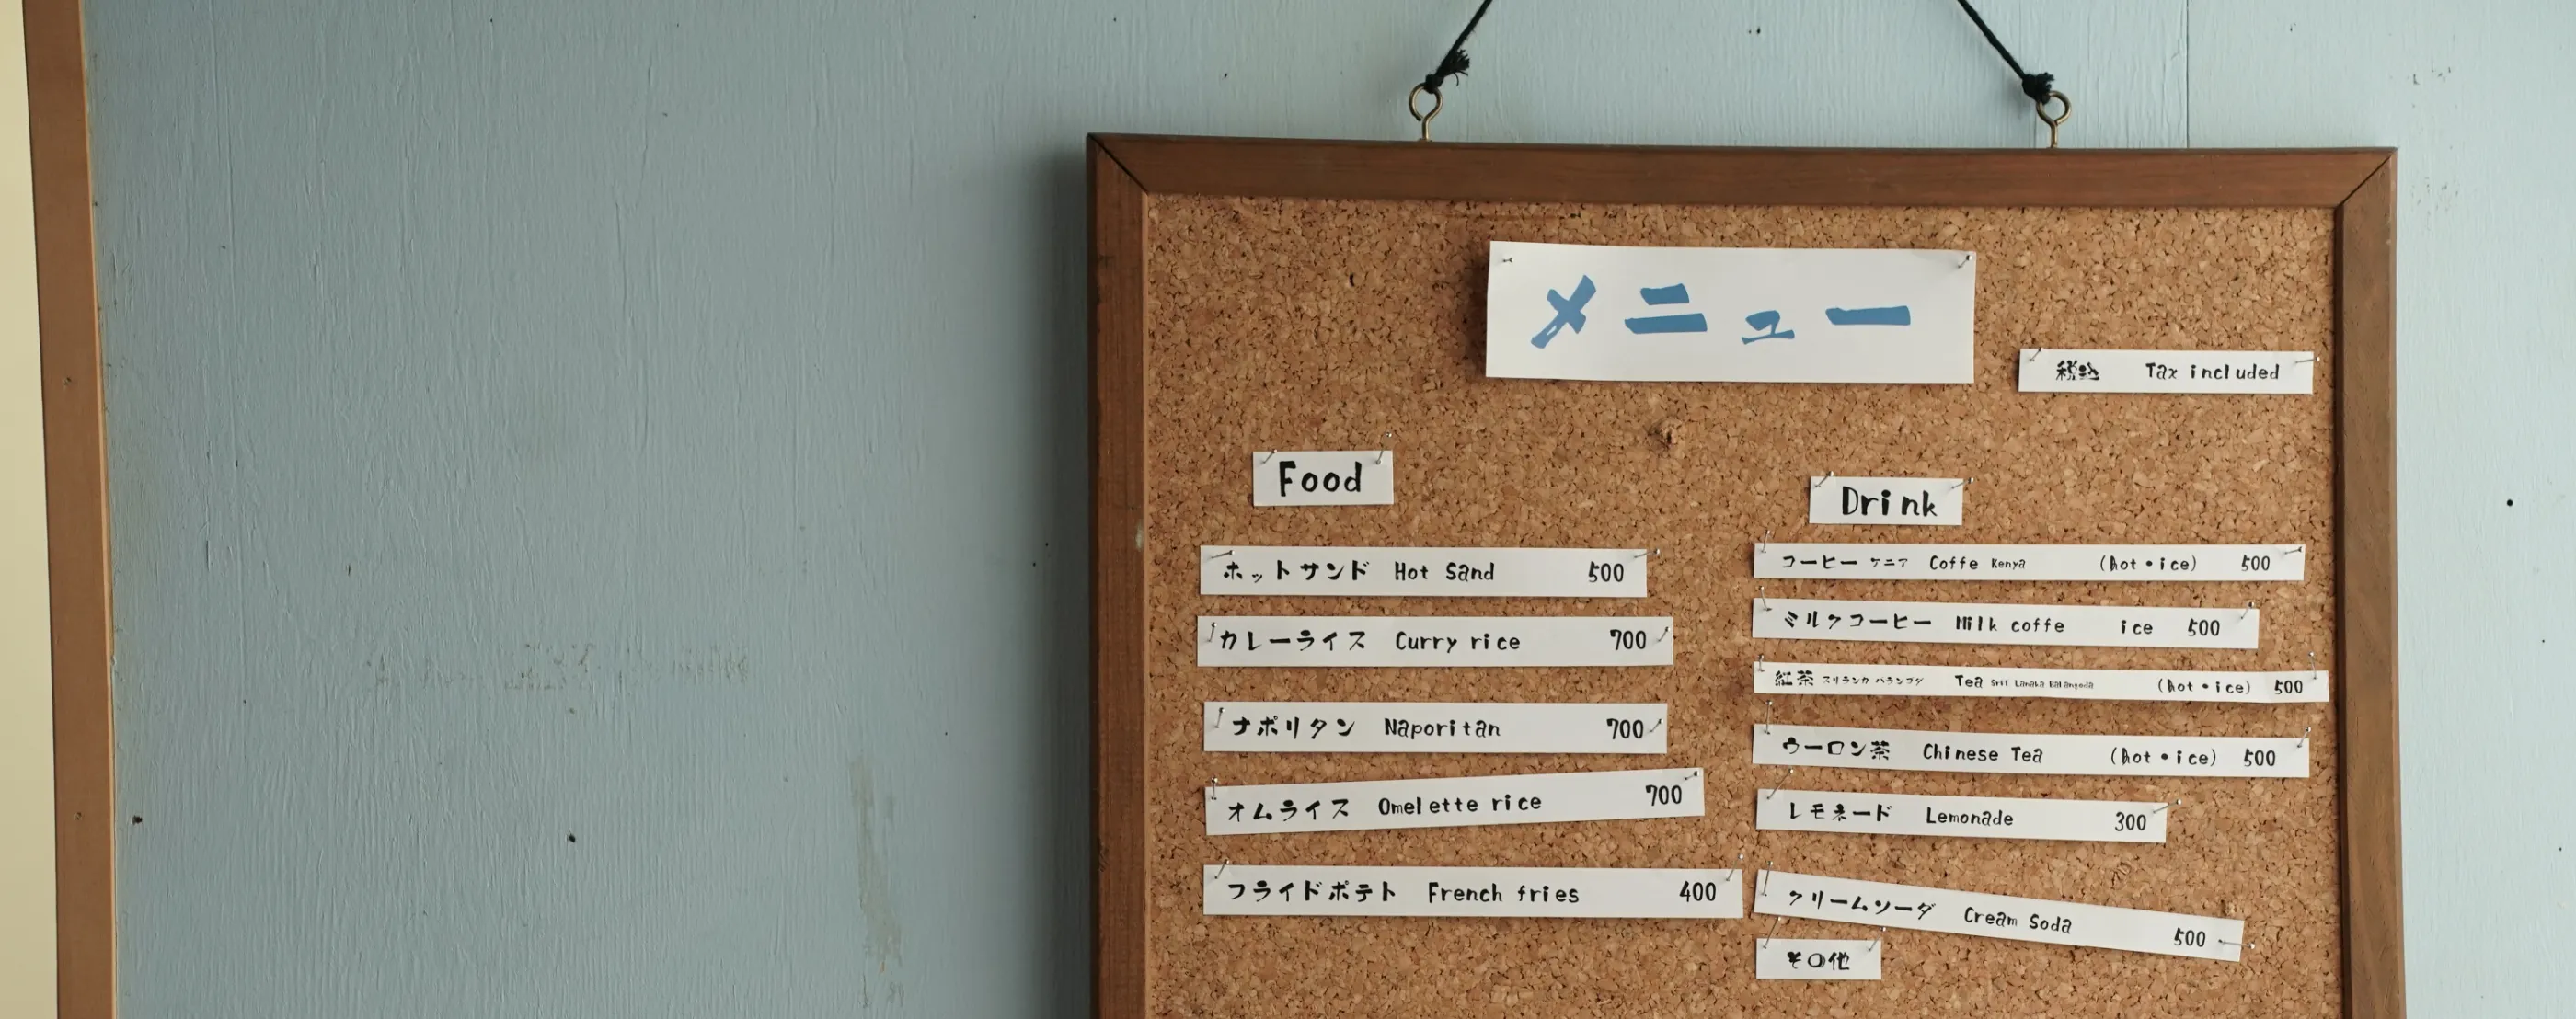 メニュー
税込 Tax included
Food
ホットサンド Hot Sand 500
カレーライス Curry rice 700
ナポリタン Naporitan 700
オムライス Omelette rice 700
フライドポテト French fries 400
Drink
コーヒー ケニア Coffe Kenya (hot・ice) 500
ミルクコーヒー Milk coffe ice 500
紅茶 スリランカ バランゴダ Tea (hot・ice) 500
ウーロン茶 Chinese Tea (hot・ice) 500
レモネード Lemonade 300
クリームソーダ Cream Soda 500
その他